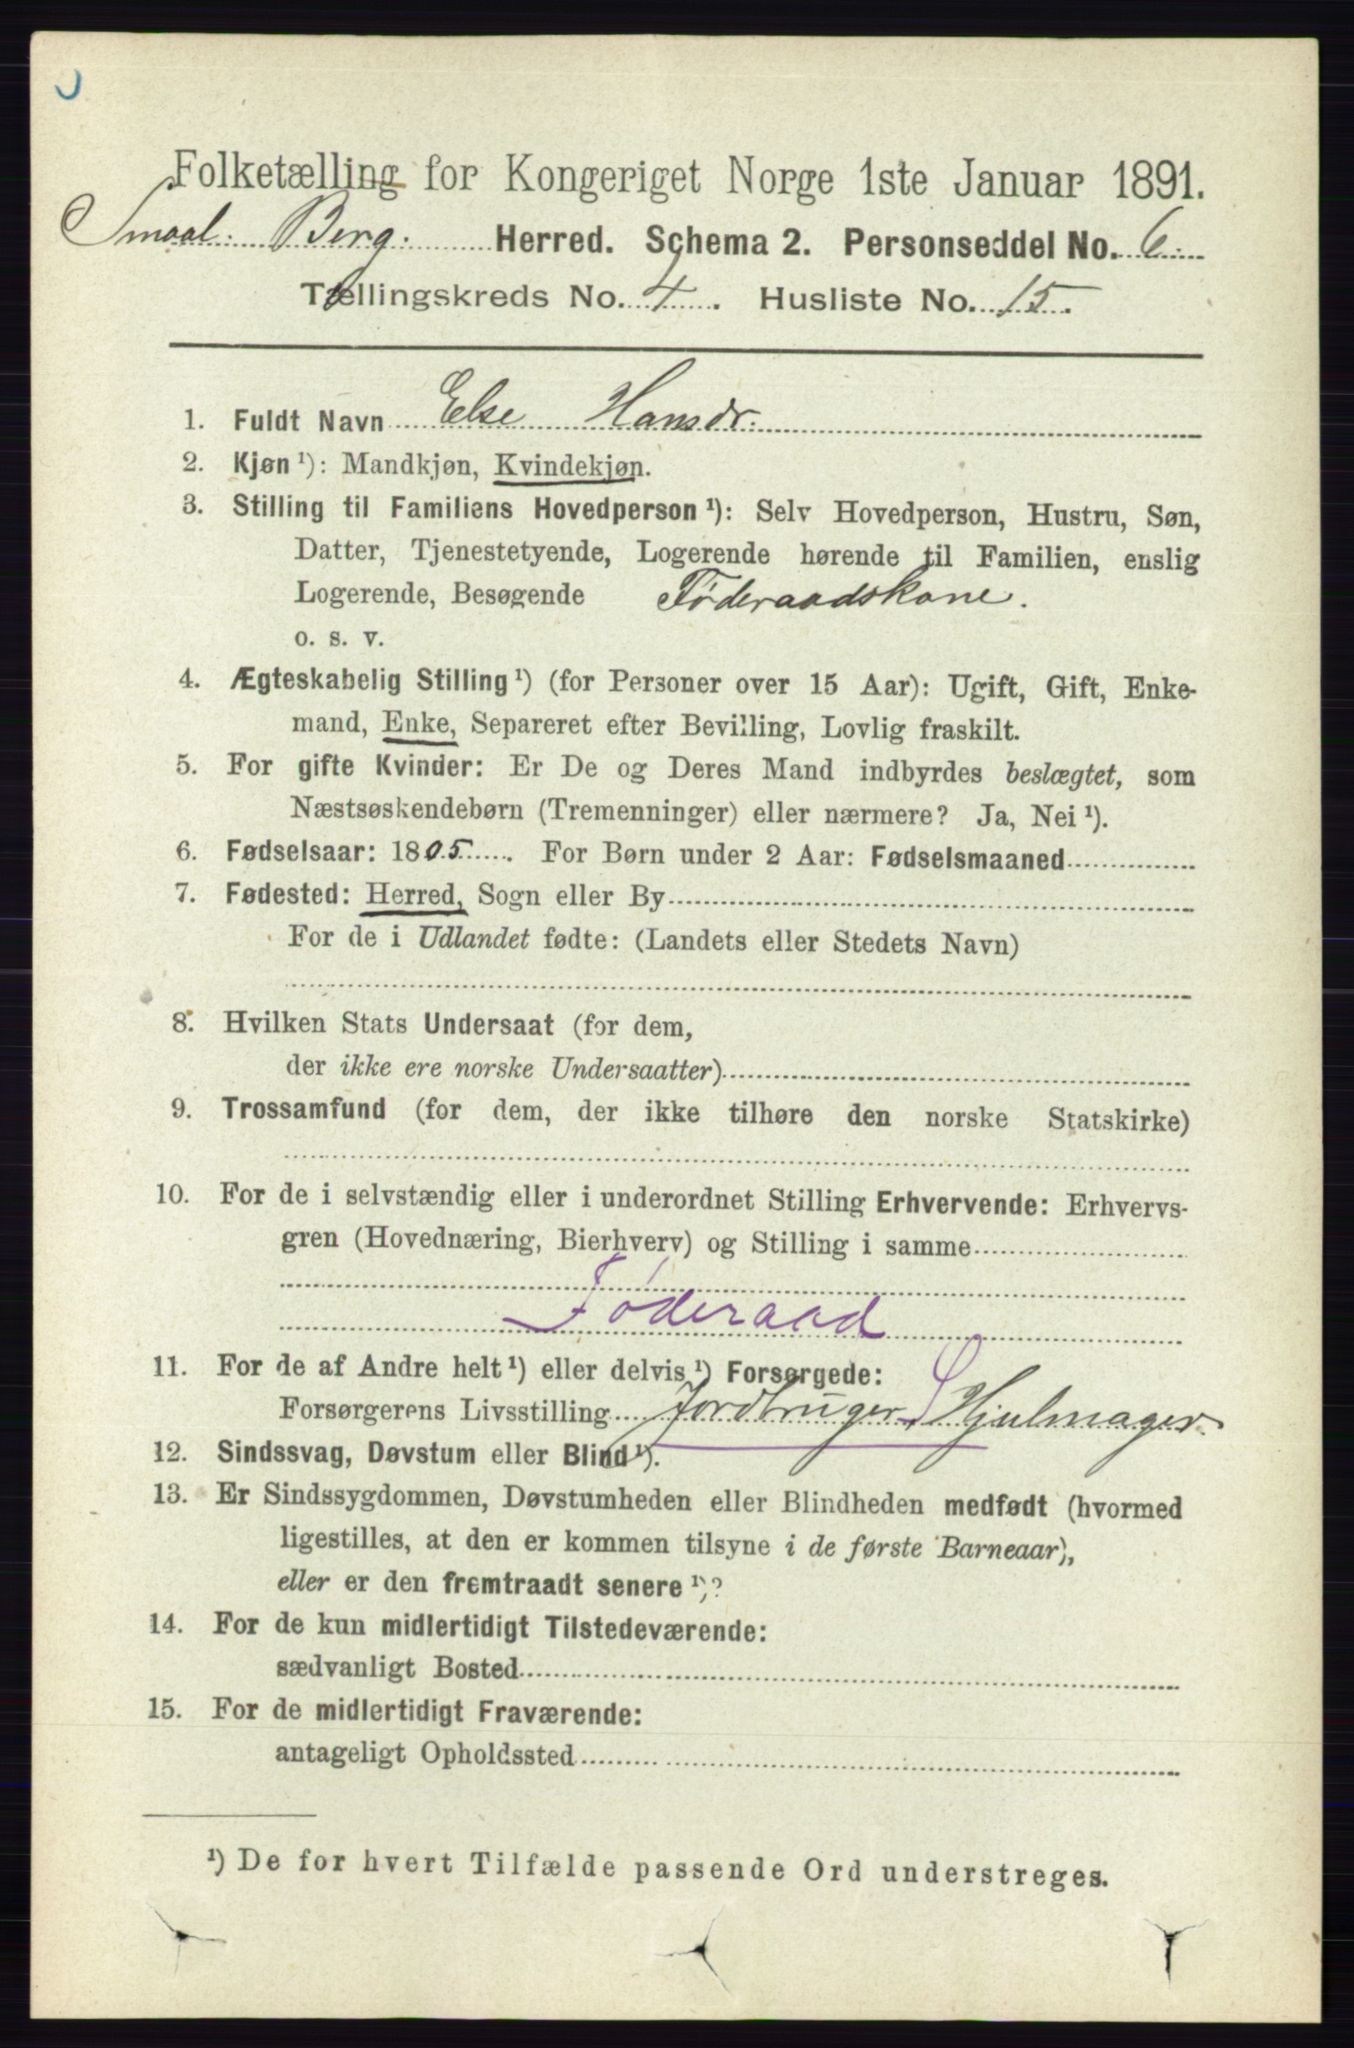 Folketælling for Kongeriget Norge 1ste Januar 1891.
Smaal. Berg. Herred. Schema 2. Personseddel No. 6.
Tællingskreds No. 4. Husliste No. 15.
1. Fuldt Navn Else Hansdr.
2. Kjøn ¹): Mandkjøn, Kvindekjøn.
3. Stilling til Familiens Hovedperson ¹): Selv Hovedperson, Hustru, Søn,
Datter, Tjenestetyende, Logerende hørende til Familien, enslig
Logerende, Besøgende Føderaadskone.
o. s. v.
4. Ægteskabelig Stilling ¹) (for Personer over 15 Aar): Ugift, Gift, Enke-
mand, Enke, Separeret efter Bevilling, Lovlig fraskilt.
5. For gifte Kvinder: Er De og Deres Mand indbyrdes beslægtet, som
Næstsøskendebørn (Tremenninger) eller nærmere? Ja, Nei ¹).
6. Fødselsaar: 1805. For Børn under 2 Aar: Fødselsmaaned
7. Fødested: Herred, Sogn eller By
For de i Udlandet fødte: (Landets eller Stedets Navn)
8. Hvilken Stats Undersaat (for dem,
der ikke ere norske Undersaatter)
9. Trossamfund (for dem, der ikke tilhøre den norske Statskirke)
10. For de i selvstændig eller i underordnet Stilling Erhvervende: Erhvervs-
gren (Hovednæring, Bierhverv) og Stilling i samme
Føderaad
11. For de af Andre helt ¹) eller delvis ¹) Forsørgede:
Forsørgerens Livsstilling Jordbruger Hjulmager.
12. Sindssvag, Døvstum eller Blind ¹).
13. Er Sindssygdommen, Døvstumheden eller Blindheden medfødt (hvormed
ligestilles, at den er kommen tilsyne i de første Barneaar),
eller er den fremtraadt senere ¹)?
14. For de kun midlertidigt Tilstedeværende:
sædvanligt Bosted
15. For de midlertidigt Fraværende:
antageligt Opholdssted
¹) De for hvert Tilfælde passende Ord understreges.